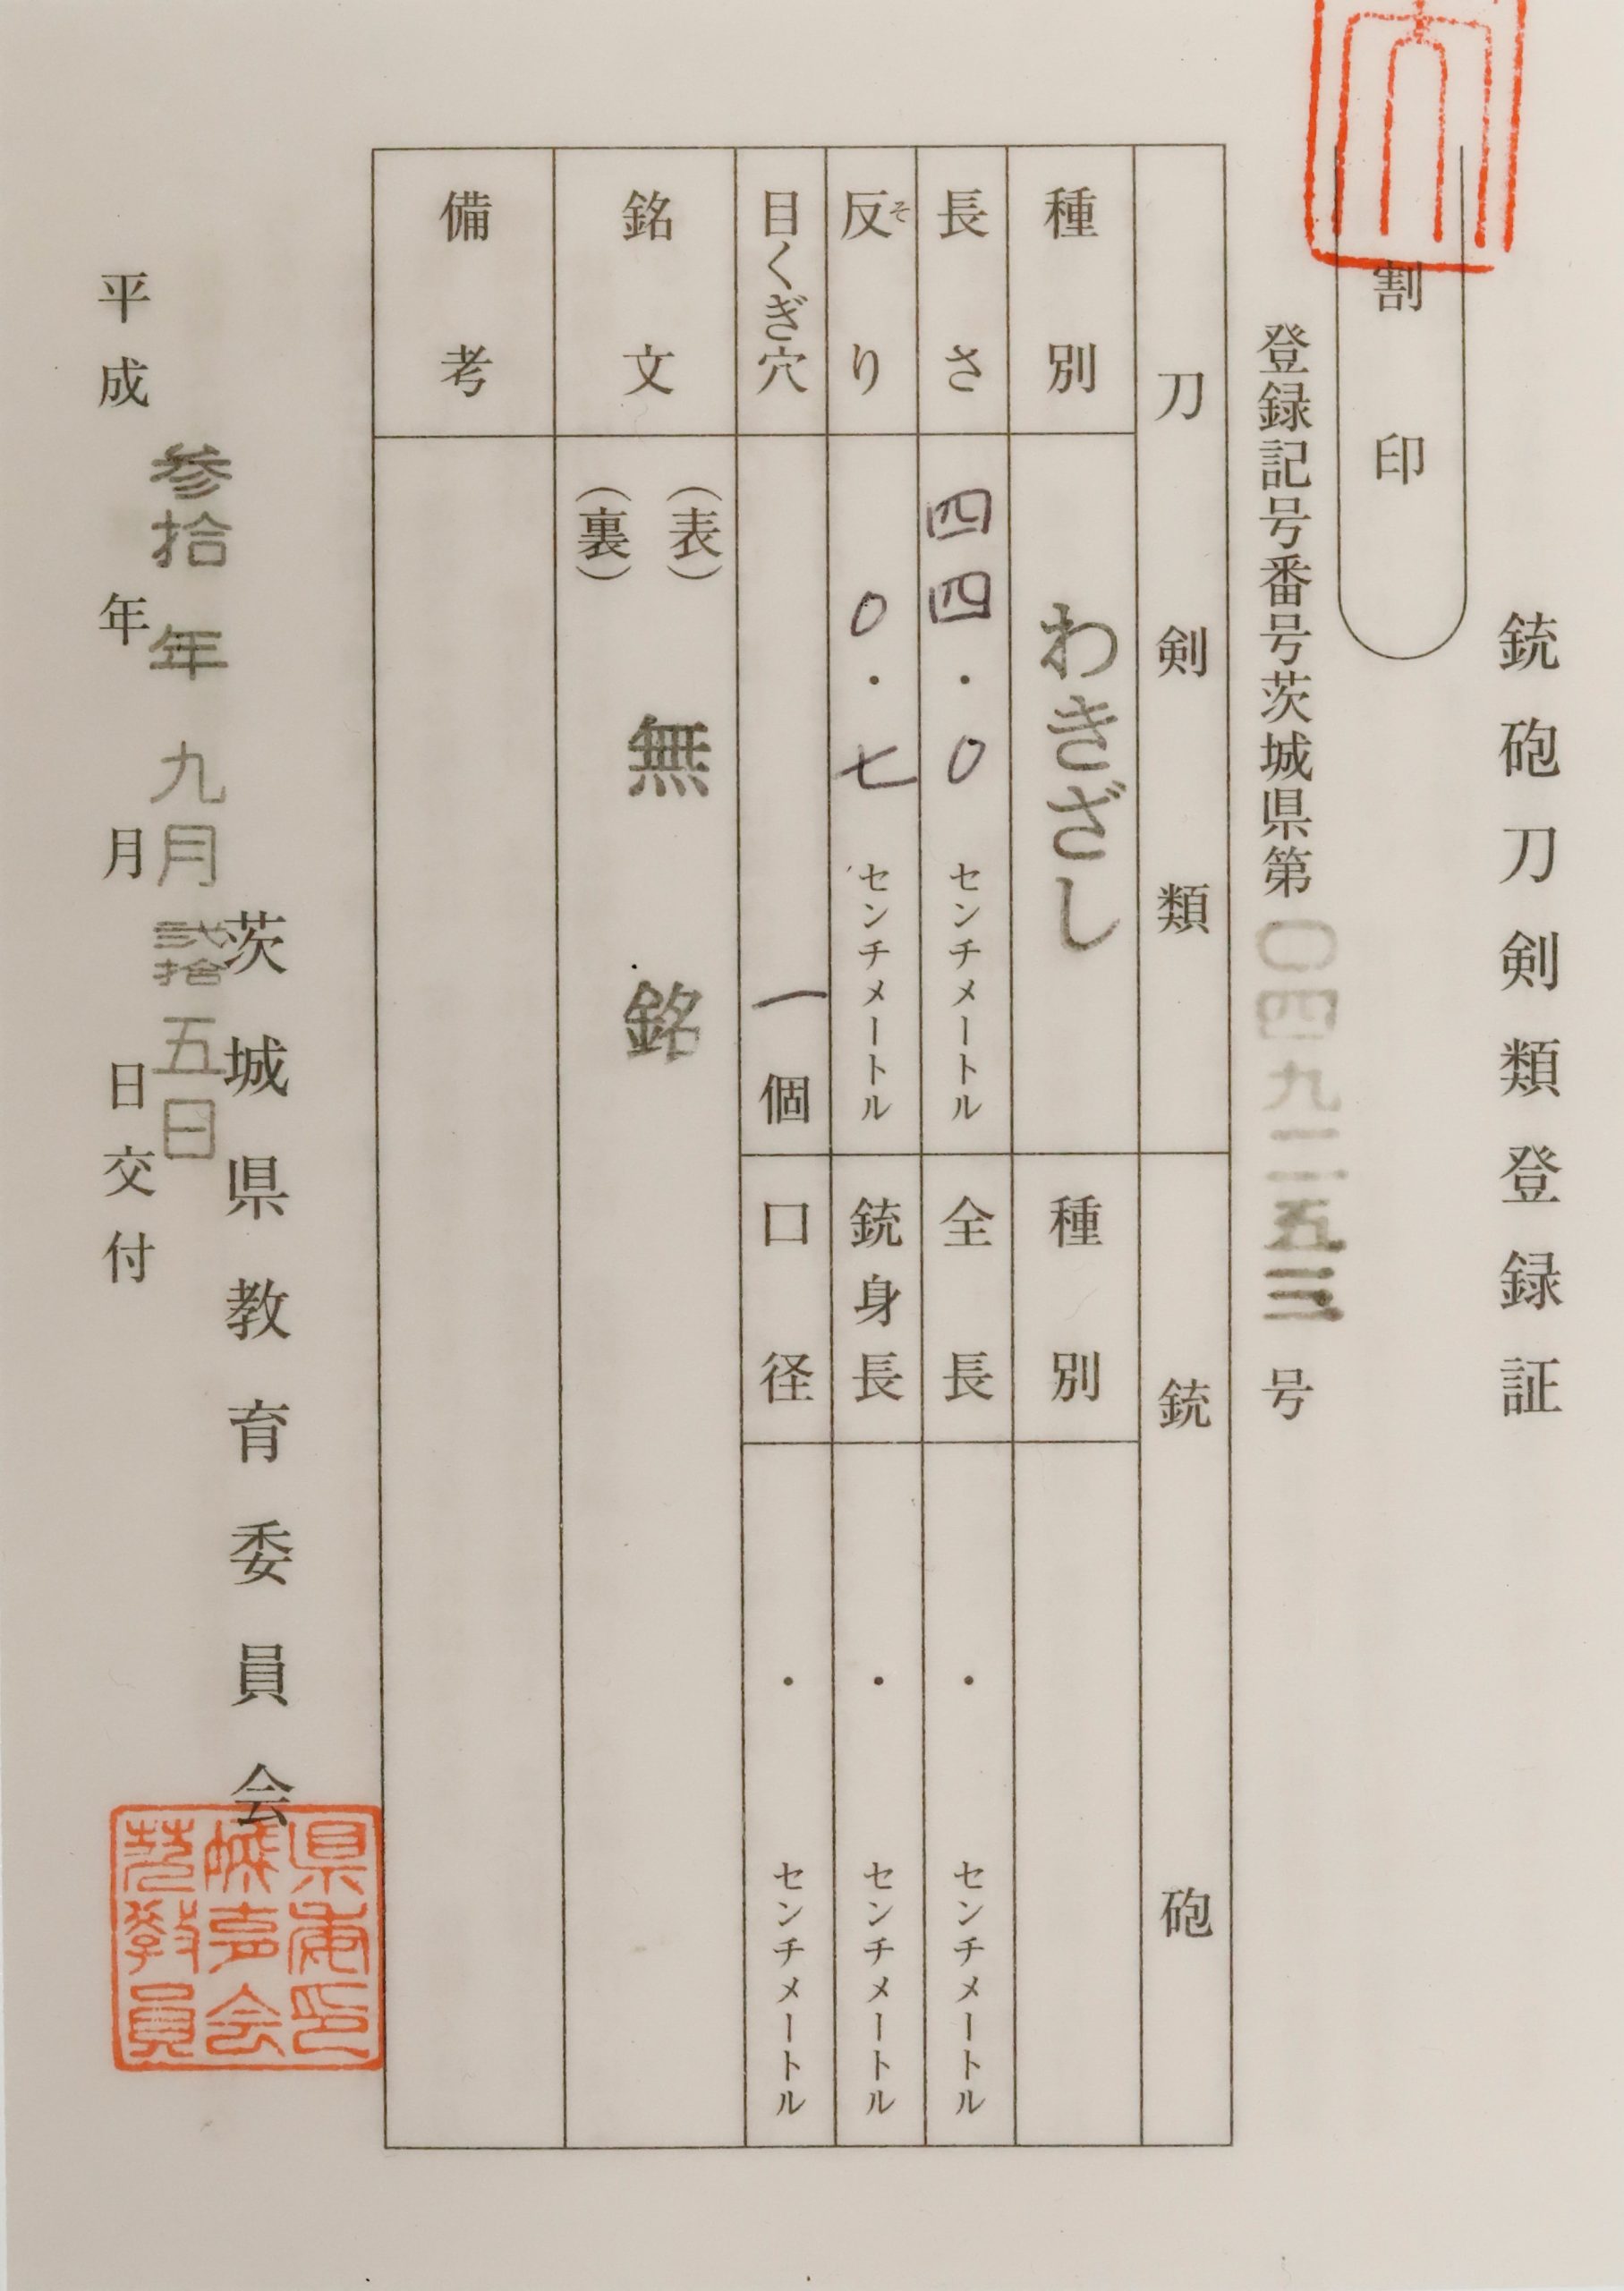 銃砲刀剣類登録証
割印
登録記号番号茨城県第〇四九二五三号
刀剣類
銃砲
種別
わきざし
種別
長さ
四四・〇センチメートル
全長
・センチメートル
反り
そ
〇・七センチメートル
銃身長
・センチメートル
目くぎ穴
一個
口径
・センチメートル
銘文
(表)
(裏)
無銘
備考
茨城県教育委員会
参拾年九月弐拾五日
平成年月日交付
茨城県
教育委
員会印